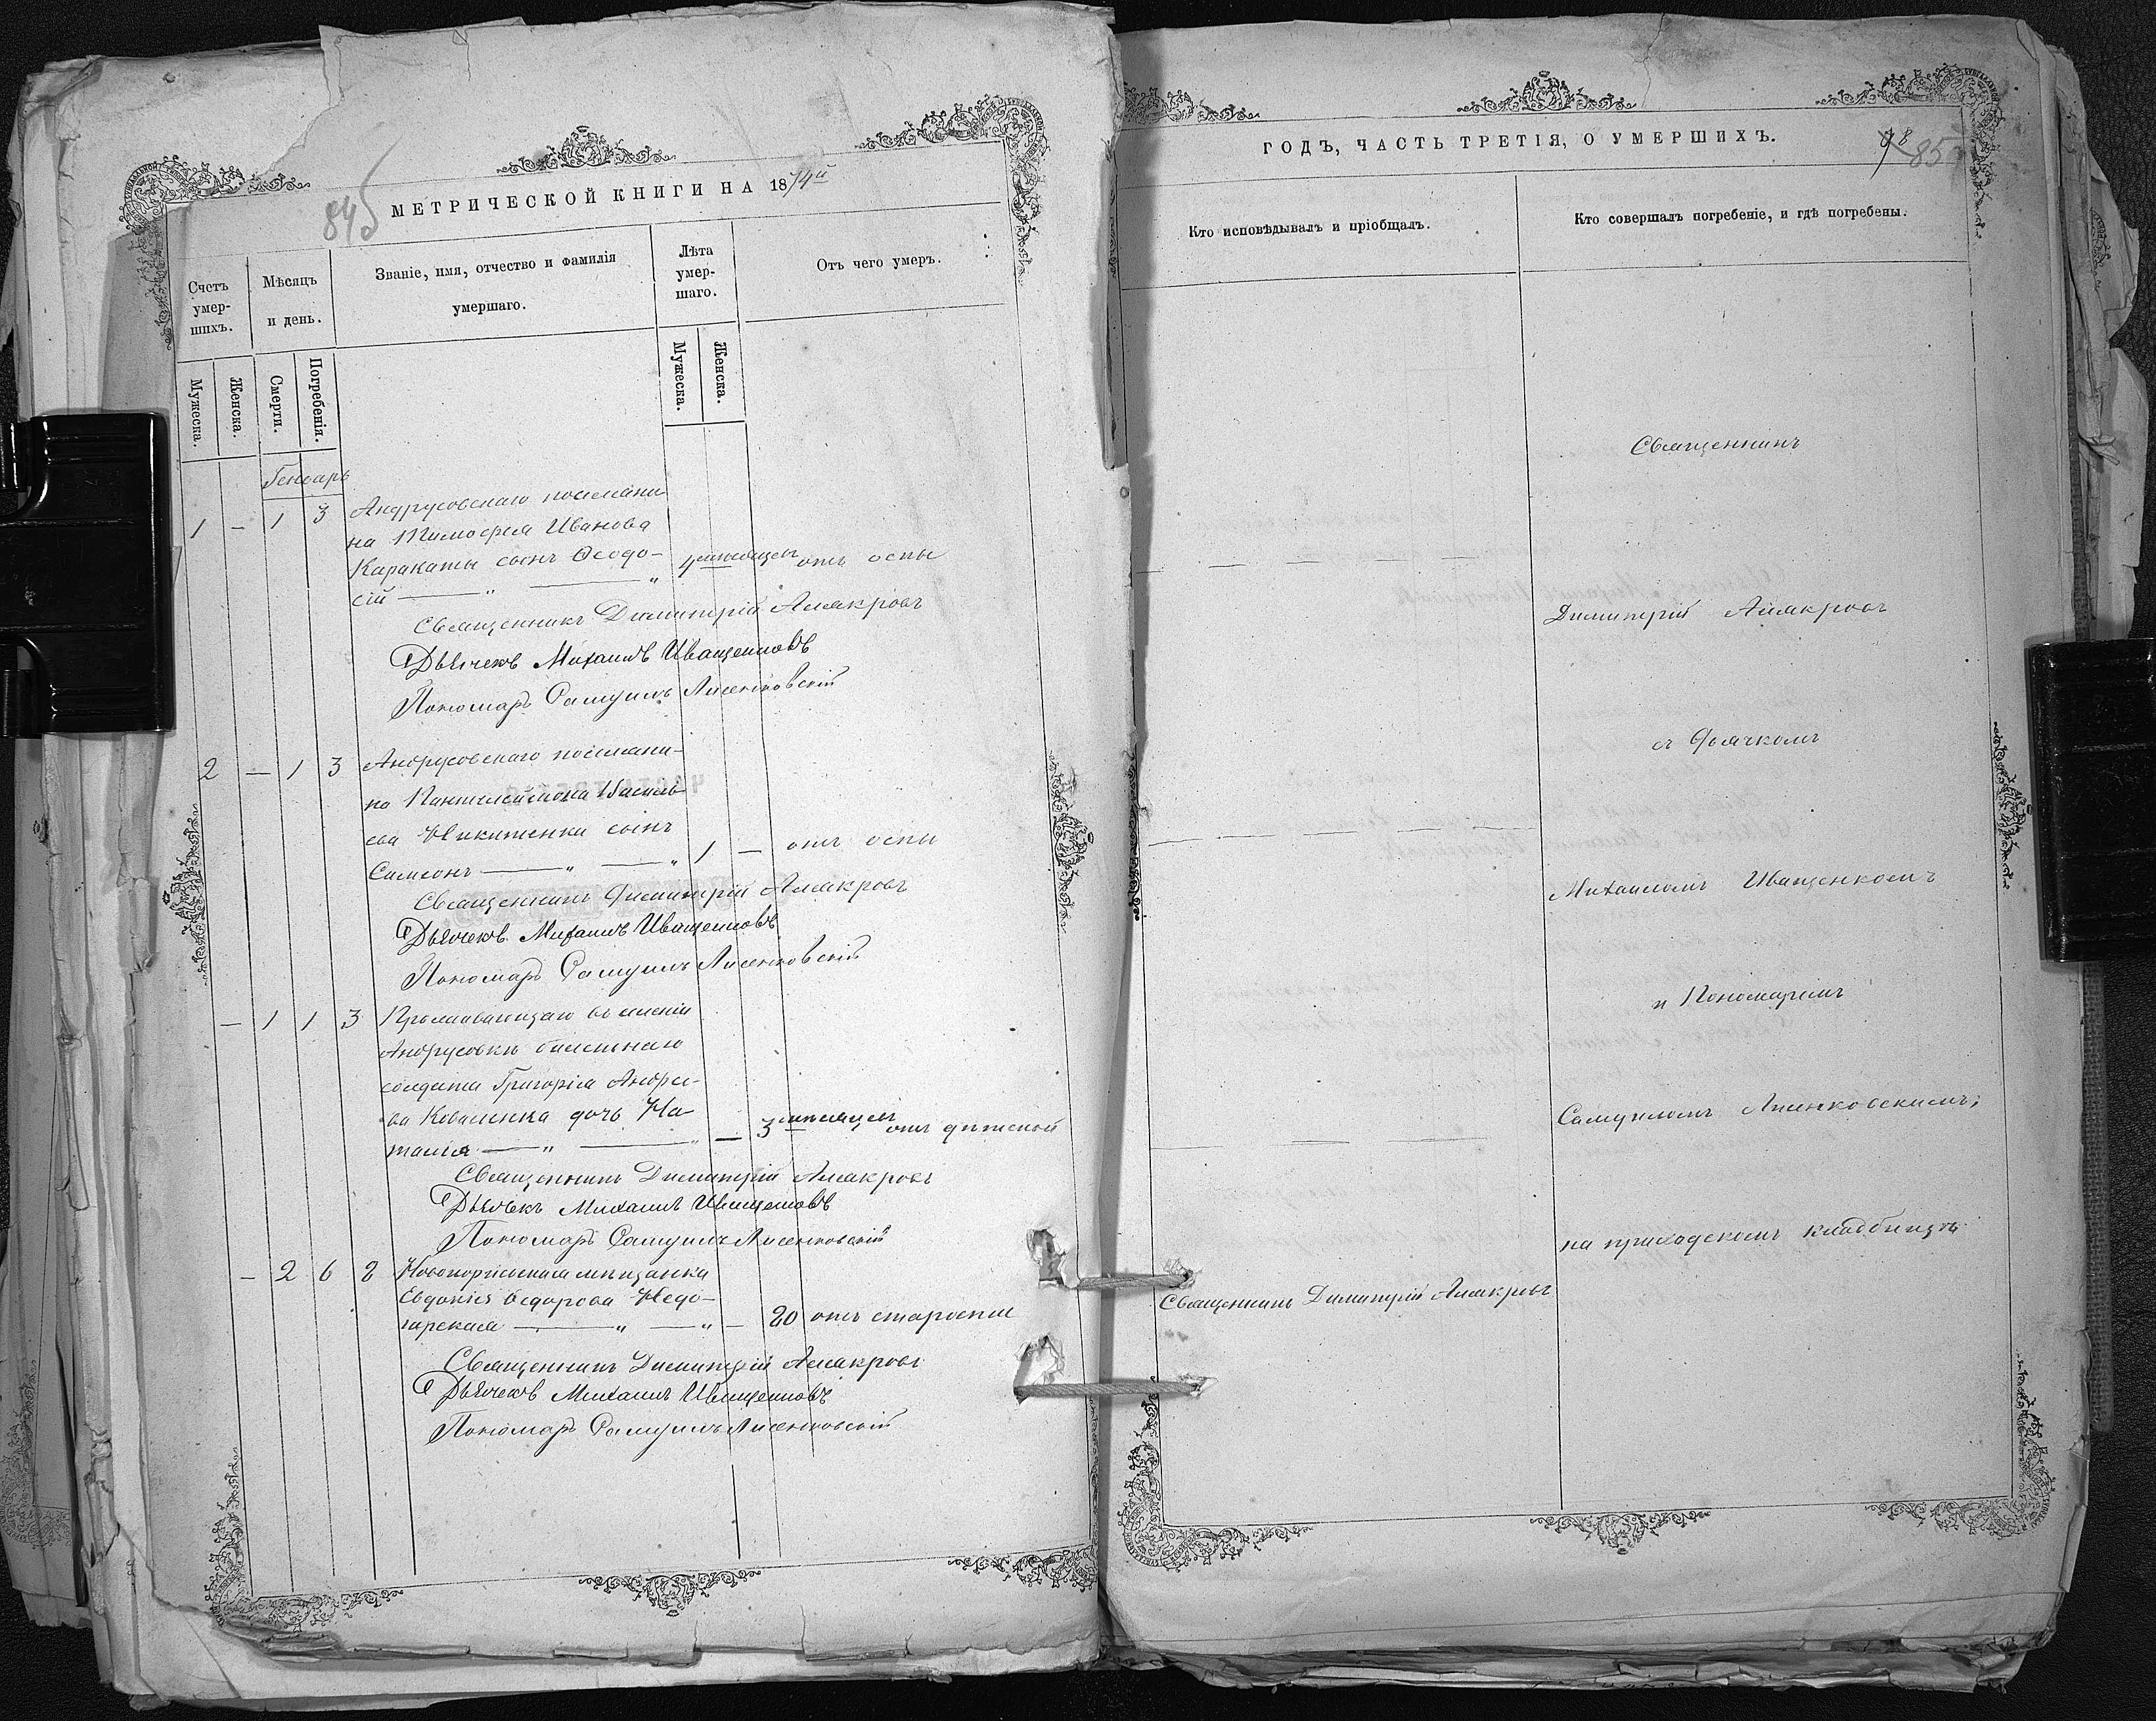 МЕТРИЧЕСКОЙ КНИГИ НА 1874й
Счетъ умер-шихъ.
Мѣсяцъ и день.
Званіе, имя, отчество и фамилія умершаго.
Лѣта умер-шаго.
Отъ чего умеръ.
Мужеска.
Женска.
Смерти.
Погребенія.
Мужеска.
Женска.
Генварь
1 - 1 3 Андрусовскаго поселяни
на Тимофея Иванова
Каракаты сынъ Ѳеодо- 4 мѣсяцы отъ оспы
сій — „ — „
Священникъ Димитрій
Дьячекъ Михаилъ Иващенковъ
Пономарь Самуилъ Лисенковскій
2 - 1 3 Андрусовскаго поселяни-
на Пантелеимона Василь
ева Никитенки сынъ
Самсонъ — „ — „ 1 - отъ оспы
Священникъ Димитрій
Дьячекъ Михаилъ Иващенковъ
Пономарь Самуилъ Лисенковскій
- 1 1 3 Проживающаго въ имѣніи
Андрусовки билетнаго
солдата Григорія Андре-
ва Коваленка дочь На
талія — „ — „ - 3 мѣсяцы отъ дѣтской
Священникъ Димитрій
Дьячекъ Михаилъ Иващенковъ
Пономарь Самуилъ Лисенковскій
- 2 6 8 Новогеоргіевская мѣщанка
Евдокія Ѳедорова
— „ — „ - 80 отъ старости
Священникъ Димитрій
Дьячекъ Михаилъ Иващенковъ
Пономарь Самуилъ Лисенковскій
ГОДЪ, ЧАСТЬ ТРЕТІЯ, О УМЕРШИХЪ.
85
Кто исповѣдывалъ и пріобщалъ.
Кто совершалъ погребеніе, и гдѣ погребены.
Священникъ
Димитрій
съ Дьячкомъ
Михаиломъ Иващенкомъ
и Пономаремъ
Самуиломъ Лисенковскимъ;
на приходскомъ кладбищѣ
Священникъ Димитрій